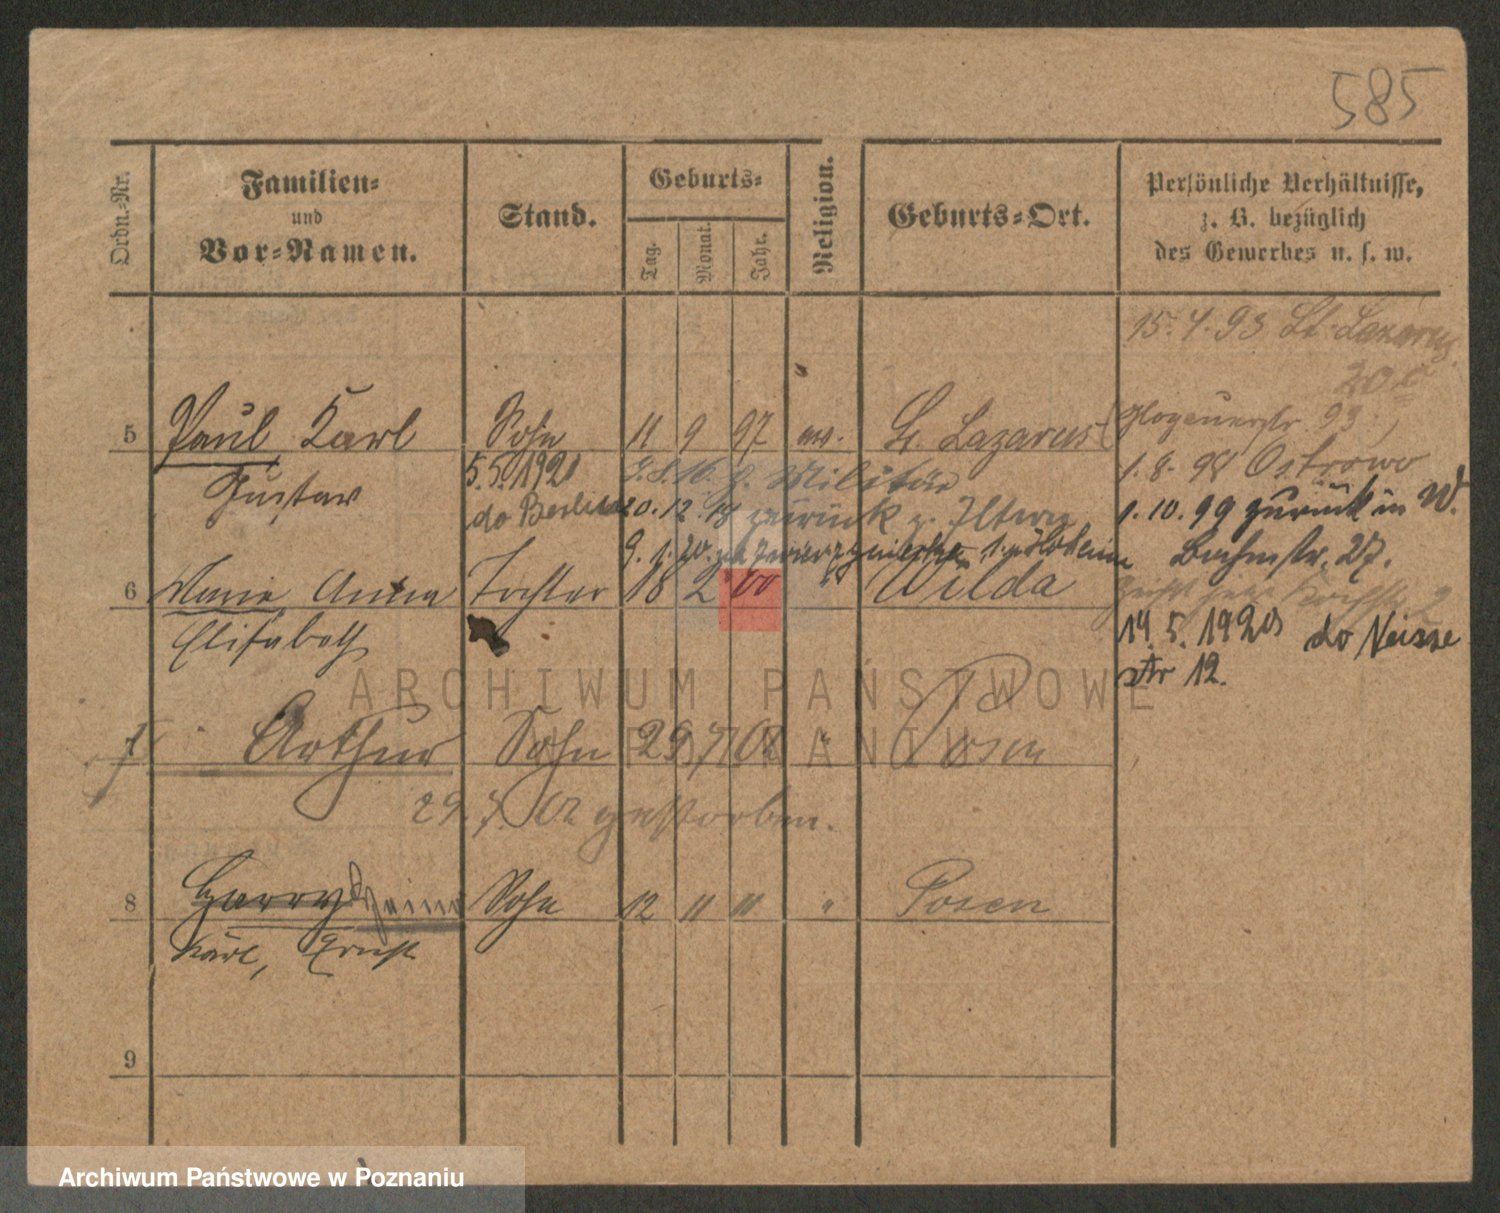 585
Ordn.-Nr.
Familien-
und
Vor-Namen.
Stand.
Geburts-
Tag.
Monat.
Jahr.
Religion.
Geburts-Ort.
Persönliche Verhältnisse,
z. B. bezüglich
des Gewerbes u. s. w.
15. 4. 93 St. Lazarus
5 Paul Karl Sohn 11 9 97 ev. St. Lazarus
Glogauerstr. 93
Gustav
5.5.1920
do Berlina
z. Militär
20. 12. 18 zurück z. Eltern
1. 8. 98 Ostrowo
1. 10. 99 zurück in W.
Bachstr. 27.
6 Marie Anna Tochter 18 2 00 " Wilda
Elisabeth
14. 5. 1920 do Neisse
str 12.
7 Arthur Sohn 29 7 02 " Posen
29. 7. 02 gestorben.
8 Harry Heinz Sohn 12 11 11 " Posen
Karl, Ernst
9
ARCHIWUM PAŃSTWOWE
W POZNANIU
Archiwum Państwowe w Poznaniu